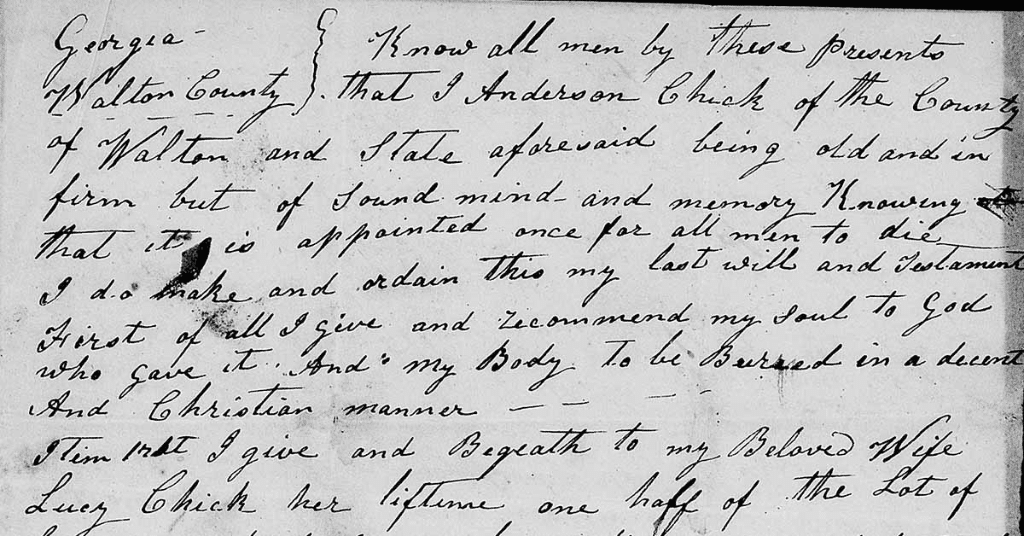 Georgia } Know all men by these presents
Walton County } that I Anderson Chick of the County
of Walton and State aforesaid being old and in
firm but of sound mind and memory Knowing
that it is appointed once for all men to die
I do make and ordain this my last will and Testament
First of all I give and recommend my soul to God
who gave it. And my Body to be Buried in a decent
And Christian manner — — — —
Item 1rst I give and Beqeath to my Beloved Wife
Lucy Chick her liftime one half of the Lot of